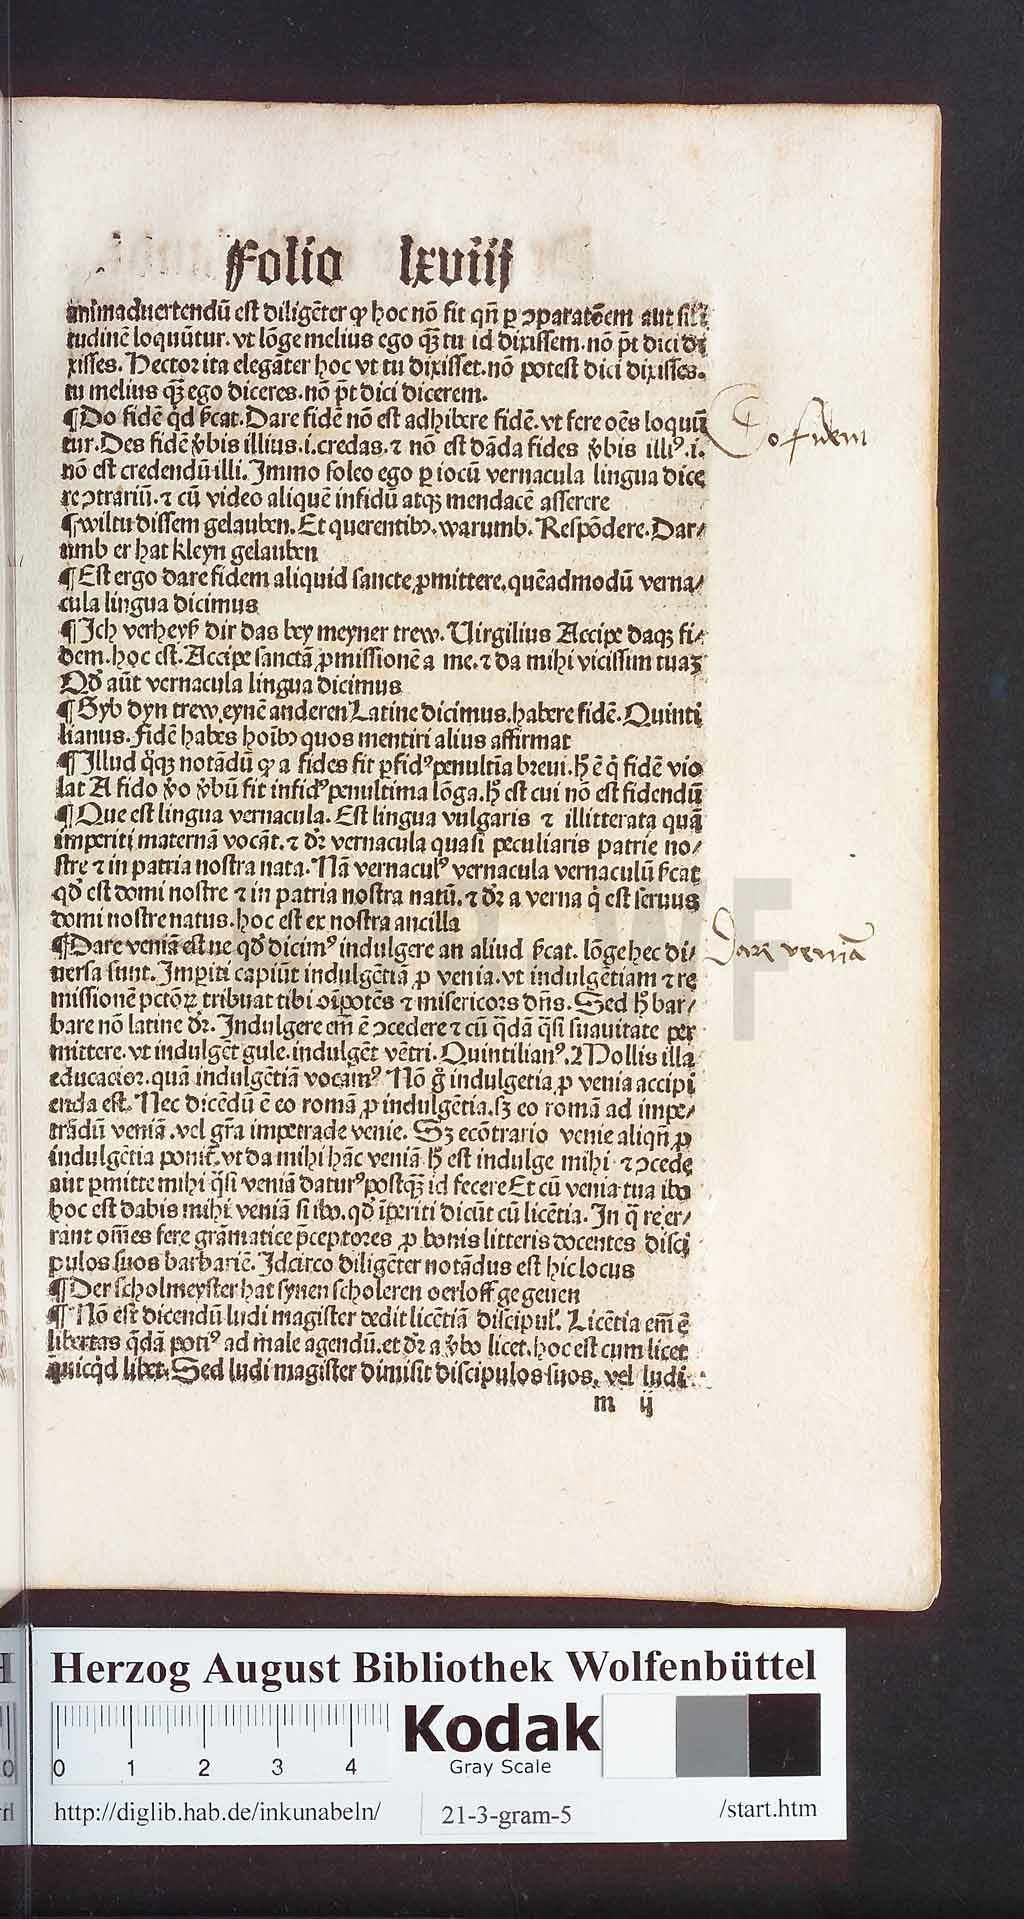 Folio lxviij
animaduertendū est diligēter ꝙ hoc nō fit qn̄ ꝑ ꝯparatōem aut sili
tudinē loquūtur. vt lōge melius ego q̄ꝫ tu id dixissem. nō p̄t dici di
xisses. Hector ita elegāter hoc vt tu dixisset. nō potest dici dixisses.
tu melius q̄ꝫ ego diceres. nō p̄t dici dicerem.
¶ Do fidē qͥd ſcat. Dare fidē nō est adhibere fidē. vt fere oēs loquū
tur. Des fidē v̾bis illius .i. credas. ⁊ nō est dāda fides v̾bis illiꝰ .i.
nō est credendū illi. Immo soleo ego ꝑ iocū vernacula lingua dice
re ꝯtrariū. ⁊ cū video aliquē infidū atqꝫ mendacē asserere
¶ wiltu dissem gelauben. Et querentibꝫ. warumb. Respōdere. Dar⸗
umb er hat kleyn gelauben
¶ Est ergo dare fidem aliquid sancte ꝓmittere. quēadmodū verna⸗
cula lingua dicimus
¶ Ich verheyß dir das bey meyner trew. Uirgilius Accipe daqꝫ fi⸗
dem. hoc est. Accipe sanctā ꝓmissionē a me. ⁊ da mihi vicissim tuaꝫ
Qd̓ aūt vernacula lingua dicimus
¶ Gyb dyn trew eynē anderen Latine dicimus. habere fidē. Quinti
lianus. fidē habes hoībꝫ quos mentiri alius affirmat
¶ Illud q̊qꝫ notādū ꝙ a fides fit ꝑfidꝰ penultīa breui. hͦ ē qͥ fidē vio
lat A fido v̾o v̾bū fit infidꝰ penultima lōga. hͦ est cui nō est fidendū
¶ Que est lingua vernacula. Est lingua vulgaris ⁊ illitterata quā
imperiti maternā vocāt. ⁊ dr̄ vernacula quasi peculiaris patrie no⸗
stre ⁊ in patria nostra nata. Nā vernaculꝰ vernacula vernaculū ſcat
qd̓ est domi nostre ⁊ in patria nostra natū. ⁊ dr̄ a verna qͥ est seruus
domi nostre natus. hoc est ex nostra ancilla
¶ Dare veniā est ne qd̓ dicimꝰ indulgere an aliud ſcat. lōge hec di⸗
uersa sunt. Imꝑiti capiūt indulgētiā ꝓ venia. vt indulgētiam ⁊ re
missionē pctōꝝ tribuat tibi oīpotēs ⁊ misericors dn̄s. Sed hͦ bar⸗
bare nō latine dr̄. Indulgere em̄ ē ꝯcedere ⁊ cū q̄dā q̄si suauitate per
mittere. vt indulgēt gule. indulgēt vētri. Quintilianꝰ. Mollis illa
educacior. quā indulgētiā vocamꝰ Nō g̊ indulgetia ꝓ venia accipi
enda est. Nec dicēdū ē eo romā ꝓ indulgētia. sꝫ eo romā ad impe⸗
trādū veniā. vel gr̄a impetrade venie. Sꝫ ecōtrario venie aliqn̄ ꝓ
indulgētia ponit̄. vt da mihi hāc veniā hͦ est indulge mihi ⁊ ꝯcede
aut ꝑmitte mihi q̄si veniā daturꝰ postq̄ꝫ id fecere Et cū venia tua ibo
hoc est dabis mihi veniā si ibo. qd̓ īperiti dicūt cū licētia. In q̄ re er⸗
rant om̄es fere grāmatice p̄ceptores ꝓ bonis litteris docentes disci
pulos suos barbariē. Idcirco diligēter notādus est hic locus
¶ Der scholmeyster hat synen scholeren oerloff gegeuen
¶ Nō est dicendū ludi magister dedit licētiā discipul̓. Licētia em̄ ē
libertas q̄dā potiꝰ ad male agendū. et dr̄ a v̾bo licet. hoc est cum licet
quicqͥd libet. Sed ludi magister dimisit discipulos suos. vel ludi
m ij
Do fidem
Dare veniā
Herzog August Bibliothek Wolfenbüttel
0 1 2 3 4
Kodak
Gray Scale
http://diglib.hab.de/inkunabeln/
21-3-gram-5
/start.htm